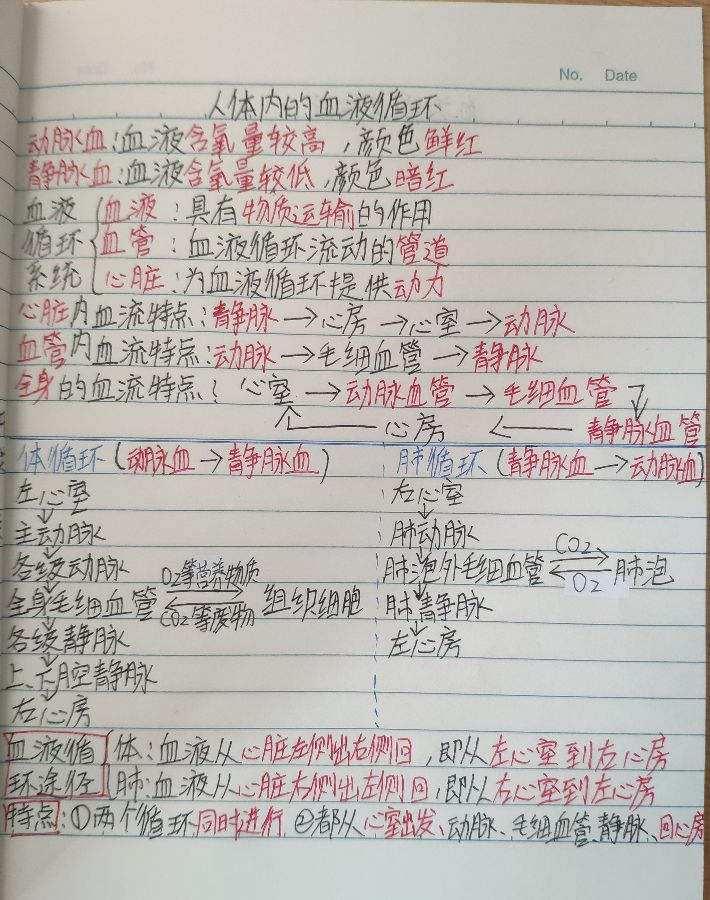 No. Date
人体内的血液循环
动脉血:血液含氧量较高,颜色鲜红
静脉血:血液含氧量较低,颜色暗红
血液循环系统
血液:具有物质运输的作用
血管:血液循环流动的管道
心脏:为血液循环提供动力
心脏内血流特点:静脉→心房→心室→动脉
血管内血流特点:动脉→毛细血管→静脉
全身的血流特点:心室→动脉血管→毛细血管
心房←静脉血管
体循环(动脉血→静脉血)
左心室
↓
主动脉
↓
各级动脉
↓
O2等营养物质
全身毛细血管⇌组织细胞
CO2等废物
↓
各级静脉
↓
上、下腔静脉
↓
右心房
肺循环(静脉血→动脉血)
右心室
↓
肺动脉
↓
CO2
肺泡外毛细血管⇌肺泡
O2
↓
肺静脉
↓
左心房
血液循环途径
体:血液从心脏左侧出右侧回,即从左心室到右心房
肺:血液从心脏右侧出左侧回,即从右心室到左心房
特点:①两个循环同时进行 ②都从心室出发、动脉、毛细血管、静脉、回心房